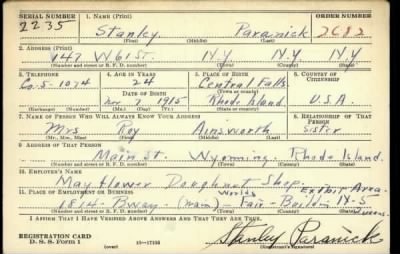 SERIAL NUMBER 1. NAME (Print) ORDER NUMBER
2235 Stanley Paranick 2682
(First) (Middle) (Last)
2. ADDRESS (Print)
147 W 61 St. N.Y. N.Y. N.Y.
(Number and street or R. F. D. number) (Town) (County) (State)
3. TELEPHONE 4. AGE IN YEARS 5. PLACE OF BIRTH 6. COUNTRY OF CITIZENSHIP
Co-5-1074 24 Central Falls
DATE OF BIRTH (Town or county)
Nov 7 1915 Rhode Island U.S.A.
(Exchange) (Number) (Mo.) (Day) (Yr.) (State or country)
7. NAME OF PERSON WHO WILL ALWAYS KNOW YOUR ADDRESS 8. RELATIONSHIP OF THAT PERSON
Mrs Roy Ainsworth Sister
(Mr., Mrs., Miss) (First) (Middle) (Last)
9. ADDRESS OF THAT PERSON
Main St. Wyoming Rhode Island.
(Number and street or R. F. D. number) (Town) (County) (State)
10. EMPLOYER'S NAME
Mayflower Doughnut Shop.
11. PLACE OF EMPLOYMENT OR BUSINESS Worlds Exhibit Area
1814 - Bway - (main) - Fair - Buildin
(Number and street or R. F. D. number) (Town) (County) (State)
I AFFIRM THAT I HAVE VERIFIED ABOVE ANSWERS AND THAT THEY ARE TRUE.
REGISTRATION CARD
D. S. S. Form 1 (over) 16-17105 Stanley Paranick
(Registrant's signature)